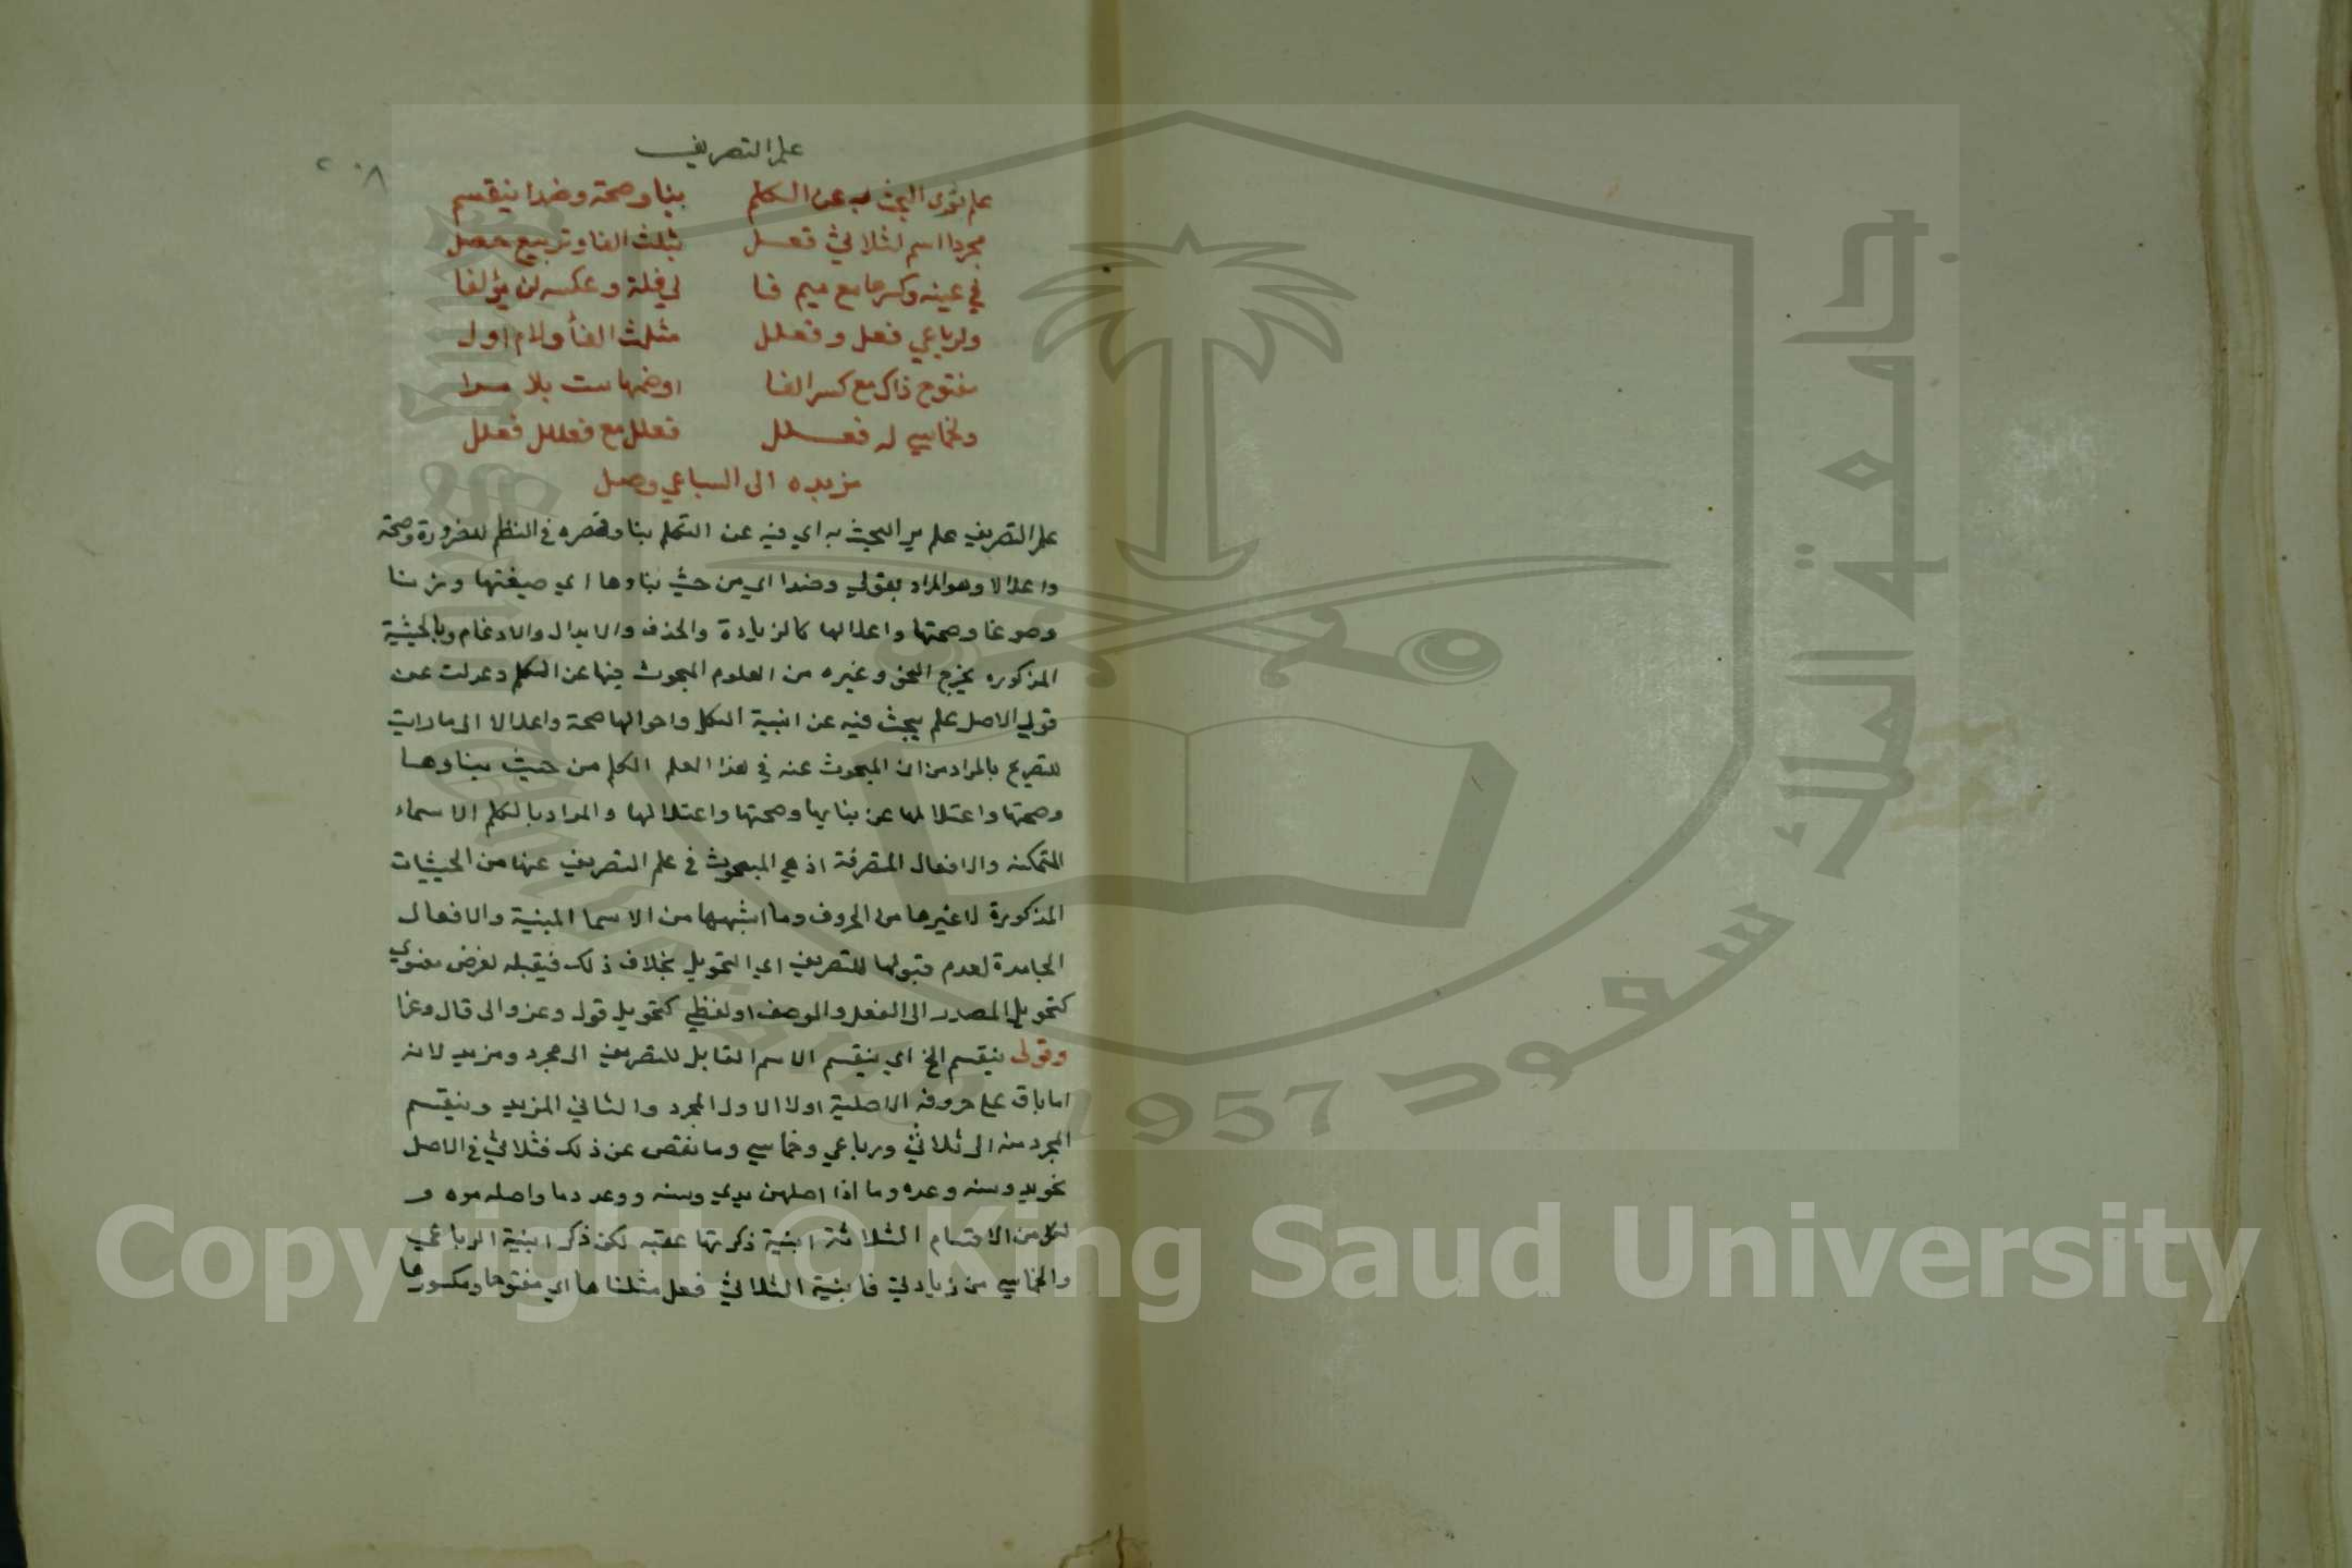 علم التصريف
٢٠٨
علم نرى البحث به عن الكلم بنا وصحة وضدا ينقسم
مجردا اسم لثلاثي فعل بثلث الفا وتربيع حصل
في عينه وكسرها مع ضم فا لي قلة وعكسه لن يؤلفا
ولرباعي فعل وفعلل مثلث الفأ ولام اول
مفتوح ذاك مع كسر الفا اوضمها ست بلا مرا
ولخماسي له فعلل فعلل مع فعلل فعلل
مزيده الى السباعي وصل
علم التصريف علم يرى البحث به اي فيه عن الكلم بنا وقصره في النظم للضرورة وصحة
واعلالا وهو المراد بقولي وضدا اي من حيث بناوها اي صيغتها وزنا
وصوغا وصحتها واعلالها كالزيادة والحذف والابدال والادغام وبالحيثية
المذكوره يخرج النحو وغيره من العلوم المبحوث فيها عن الكلم وعدلت عن
قولي الاصل علم يبحث فيه عن ابنية الكلم واحوالها صحة واعلالا الى مارايت
للتصريح بالمراد من ان المبحوث عنه في هذا العلم الكلم من حيث بناوها
وصحتها واعتلالها عن بنايها وصحتها واعتلالها والمراد بالكلم الاسماء
المتمكنه والافعال المتصرفة اذ هي المبحوث في علم التصريف عنها من الحيثيات
المذكورة لا غيرها من الحروف وما اشبهها من الاسما المبنية والافعال
الجامدة لعدم قبولها للتصريف اي التحويل بخلاف ذلك فيقبله لغرض معنوي
كتحويل المصدر الى الفعل والوصف او لفظي كتحويل قول وغزو الى قال وغزا
وقولى ينقسم الخ اي ينقسم الاسم القابل للتصريف الى مجرد ومزيد لانه
اما باق على حروفه الاصلية اولا الاول المجرد والثاني المزيد وينقسم
المجرد منه الى ثلاثي ورباعي وخماسي وما نقص عن ذلك فثلاثي في الاصل
نحو يد وسنه وعده وما اذا اصلهن يدي وسنه ووعد وما واصله موه و
لكل من الاقسام الثلاثة ابنية ذكرتها عقبه لكن ذكر ابنية الرباعي
والخماسي من زيادتي فابنية الثلاثي فعل مثلثا ها اي مفتوحها ومكسورها
جامعة الملك سعود
1957
Copyright © King Saud University